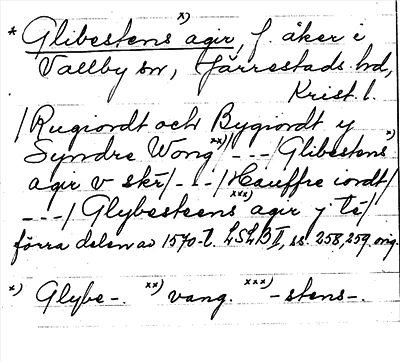 * Glibestens x) agir, f. åker i
Vallby sn, Järrestads hd,
Krist. l.
/Rugiordt och Bygiordt y
Syndre Wong xx)/ --- /Glibestens x)
agir v skr/ --- /Hauffre iordt/
--- / Glybesteens xxx) agir j té/
förra delen av 1570-t. LSLB I, ss. 258, 259. orig.
x) Glybe-. xx) vang. xxx) -stens-.